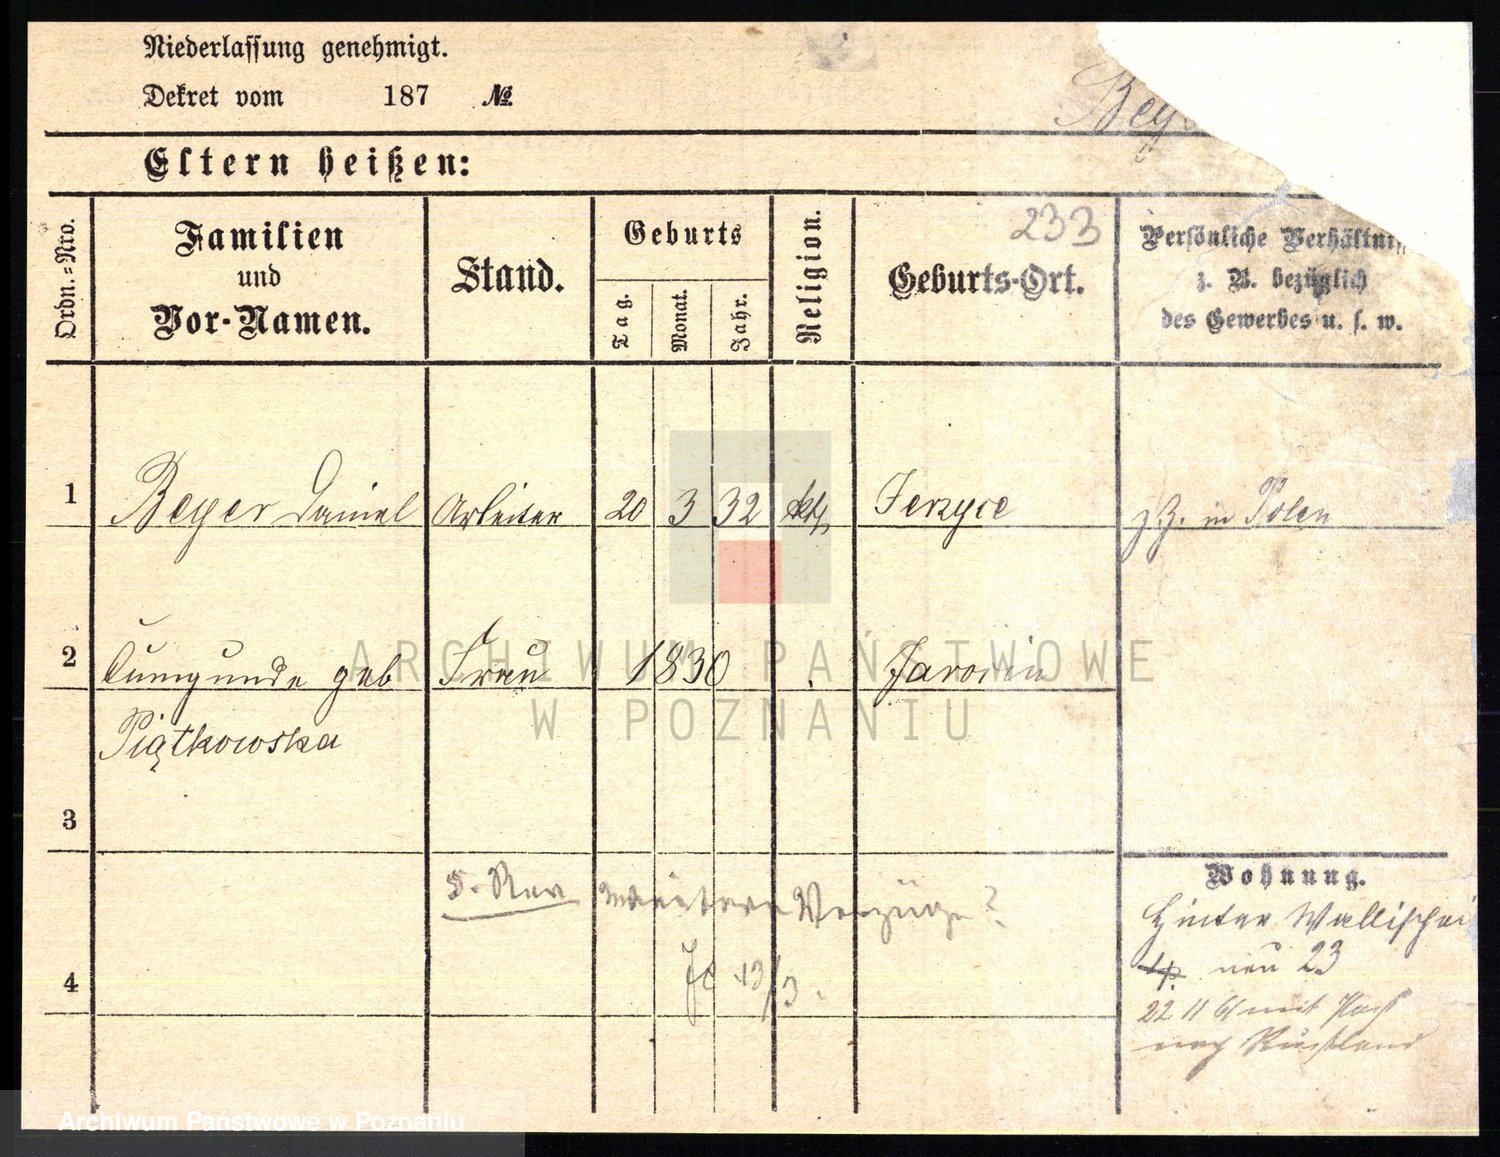 Niederlassung genehmigt.
Dekret vom 187 №
Beye
Eltern heißen:
Ordn.-Nro.
Familien und Vor-Namen.
Stand.
Geburts
Tag.
Monat.
Jahr.
Religion.
233
Geburts-Ort.
Persönliche Verhältnis
z. B. bezüglich
des Gewerbes u. s. w.
1 Beyer Daniel Arbeiter 20 3 32 kth Jerzyce z. Z. in Polen
2 Cunigunde geb Frau 1830 Jarocin
Piątkowska
3
Wohnung.
Hinter Wallischei
neu 23
4
22 11 61 mit Pass
nach Russland
13/3.
ARCHIWUM PAŃSTWOWE
W POZNANIU
Archiwum Państwowe w Poznaniu